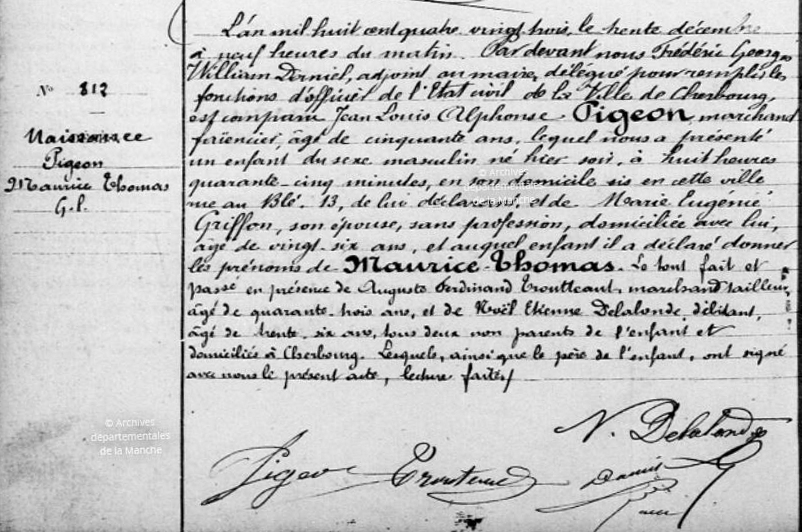 N° 812
Naissance
Pigeon
Maurice Thomas
G. l.
L'an mil huit cent quatre vingt trois, le trente décembre
à neuf heures du matin. Par devant nous Frédéric Georges
William Derniel, adjoint au maire, délégué pour remplir les
fonctions d'officier de l'Etat civil de la Ville de Cherbourg,
est comparu Jean Louis Alphonse Pigeon, marchand
faïencier, âgé de cinquante ans, lequel nous a présenté
un enfant du sexe masculin né hier soir, à huit heures
quarante-cinq minutes, en son domicile sis en cette ville
rue au Blé, 13, de lui déclarant, et de Marie Eugenie
Griffon, son épouse, sans profession, domiciliée avec lui,
âgée de vingt-six ans, et auquel enfant il a déclaré donner
les prénoms de Maurice-Thomas. Le tout fait et
passé en présence de Auguste Ferdinand Troutteaut, marchand tailleur,
âgé de quarante-trois ans, et de Noël Etienne Delalonde, débitant,
âgé de trente-six ans, tous deux non parents de l'enfant et
domiciliés à Cherbourg. Lesquels, ainsi que le père de l'enfant, ont signé
avec nous le présent acte, lecture faite./
N. Delalonde
Pigeon
© Archives
départementales
de la Manche
© Archives
départementales
de la Manche